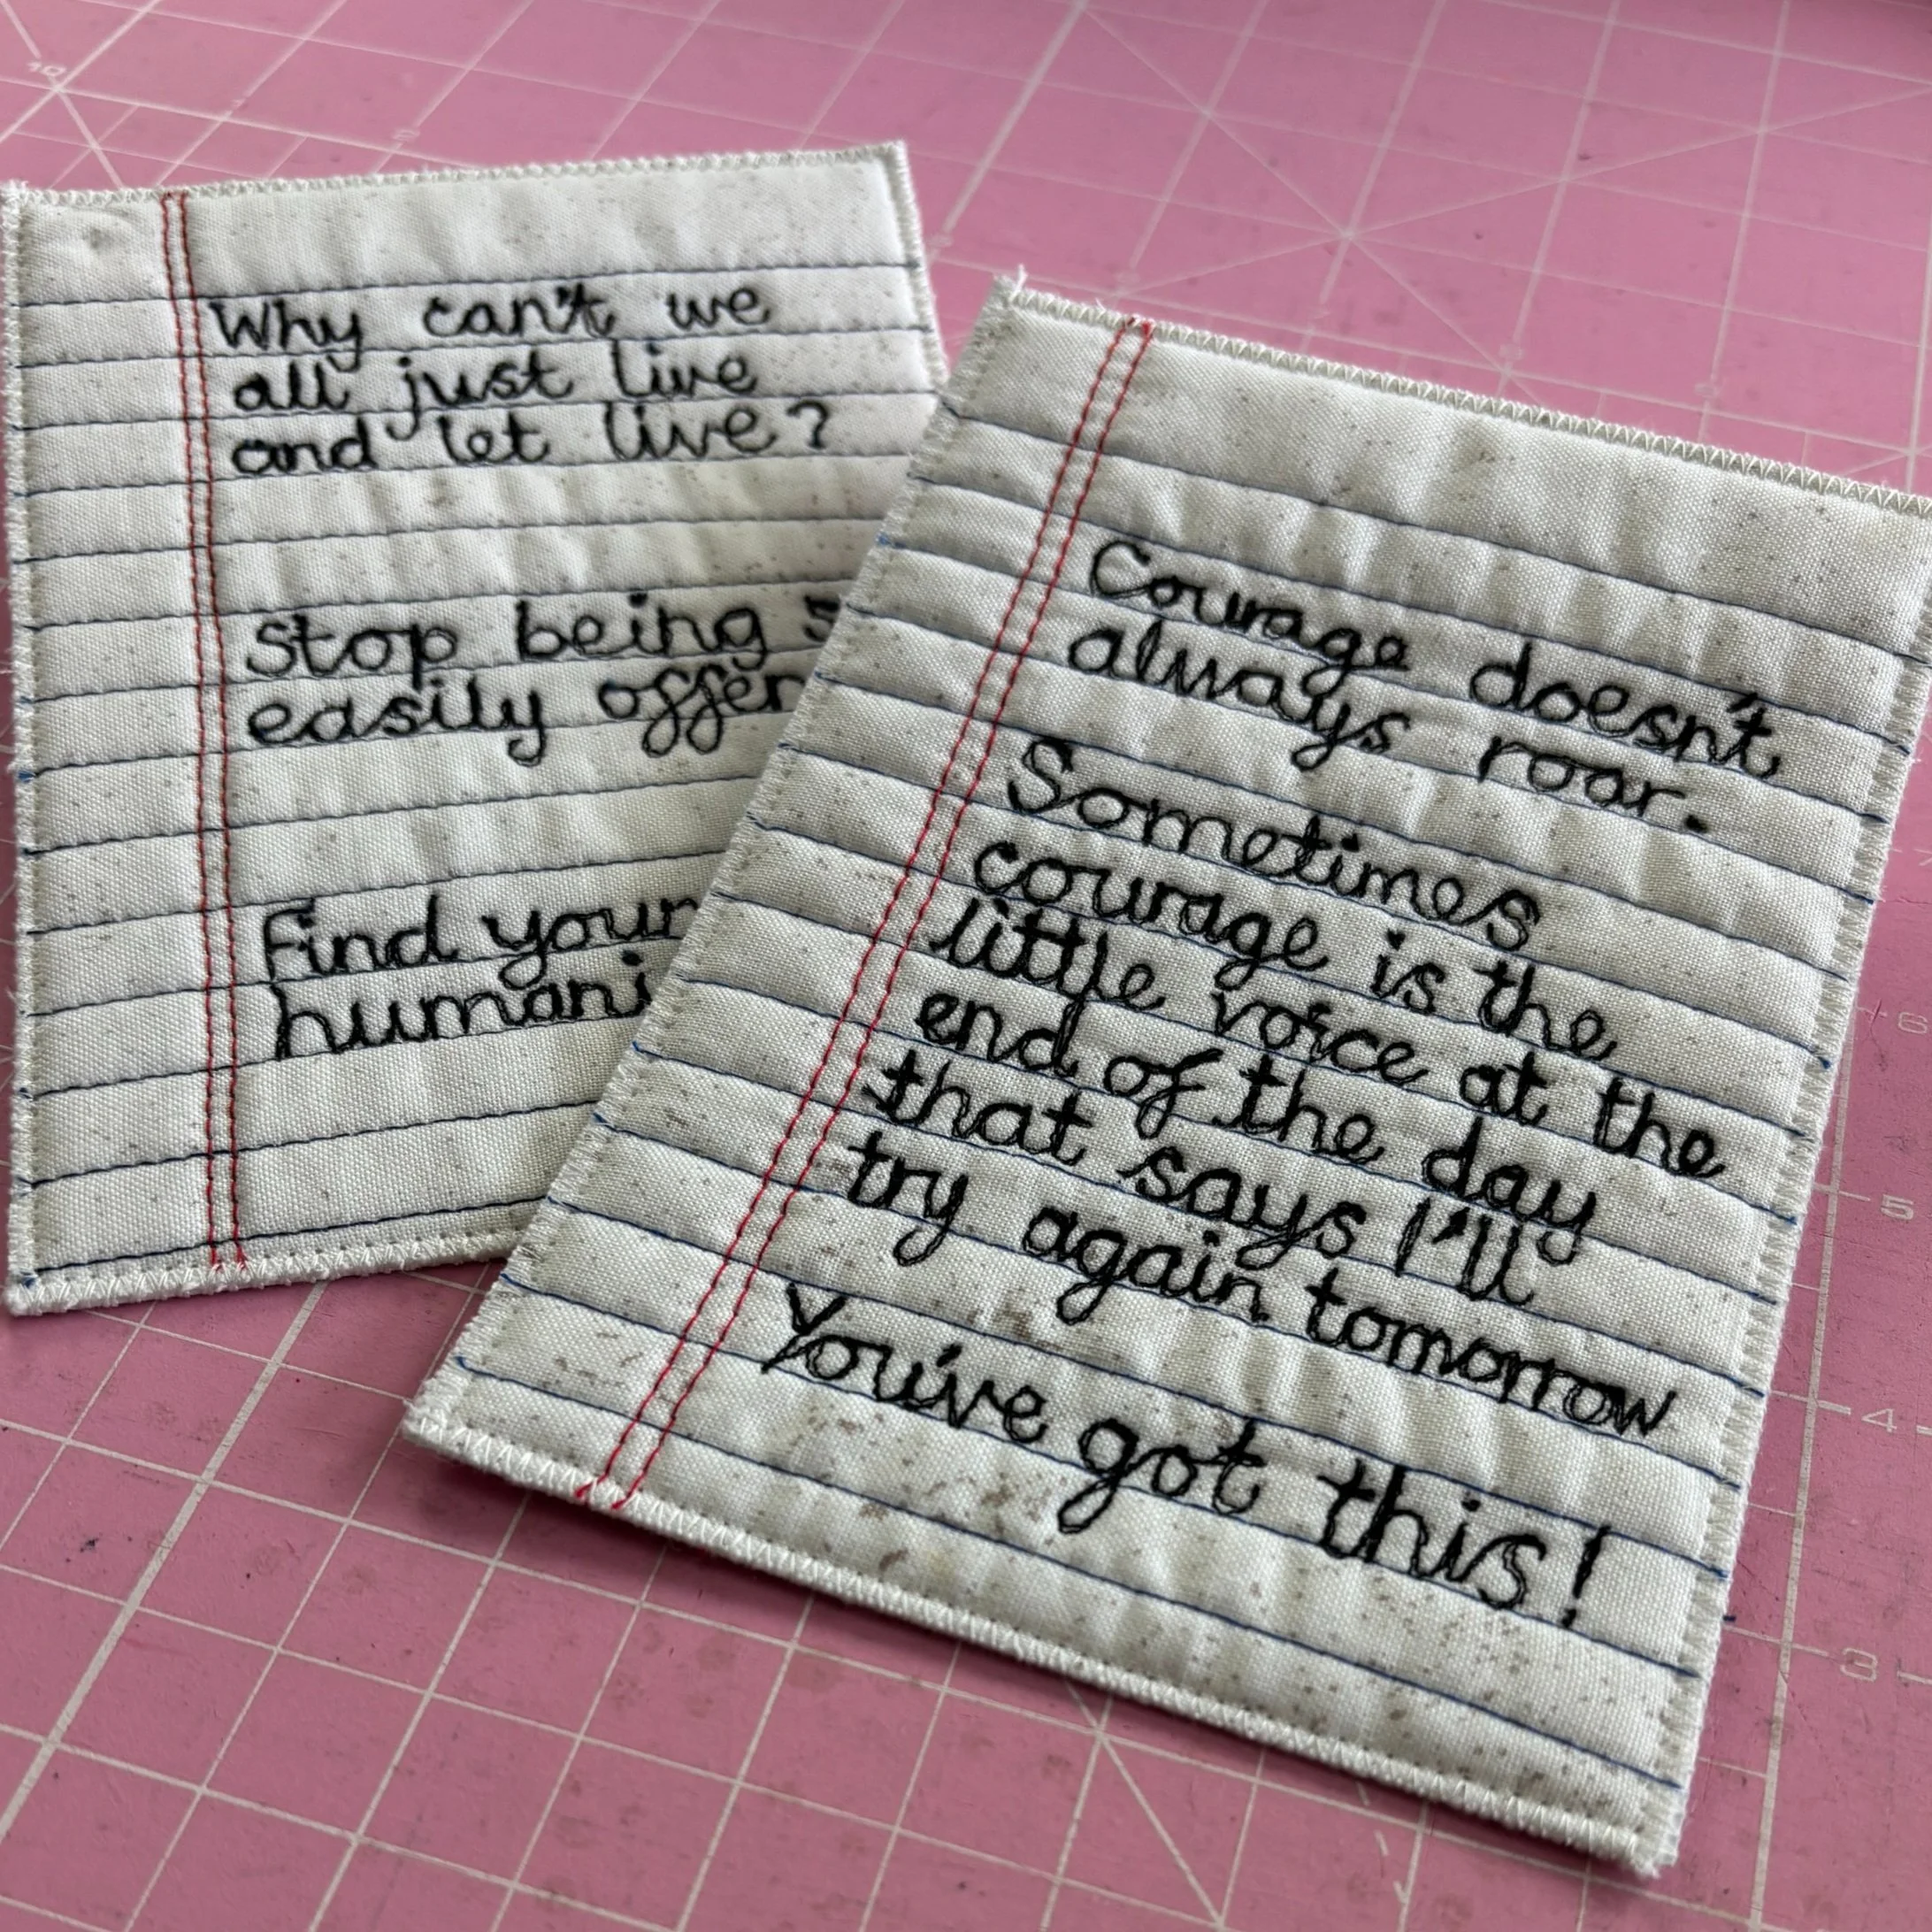 Why can't we
all just live
and let live?
Stop being
easily
Find your
Courage doesn't
always roar.
Sometimes
courage is the
little voice at the
end of the day
that says I'll
try again tomorrow
You've got this!
10
6
5
4
3